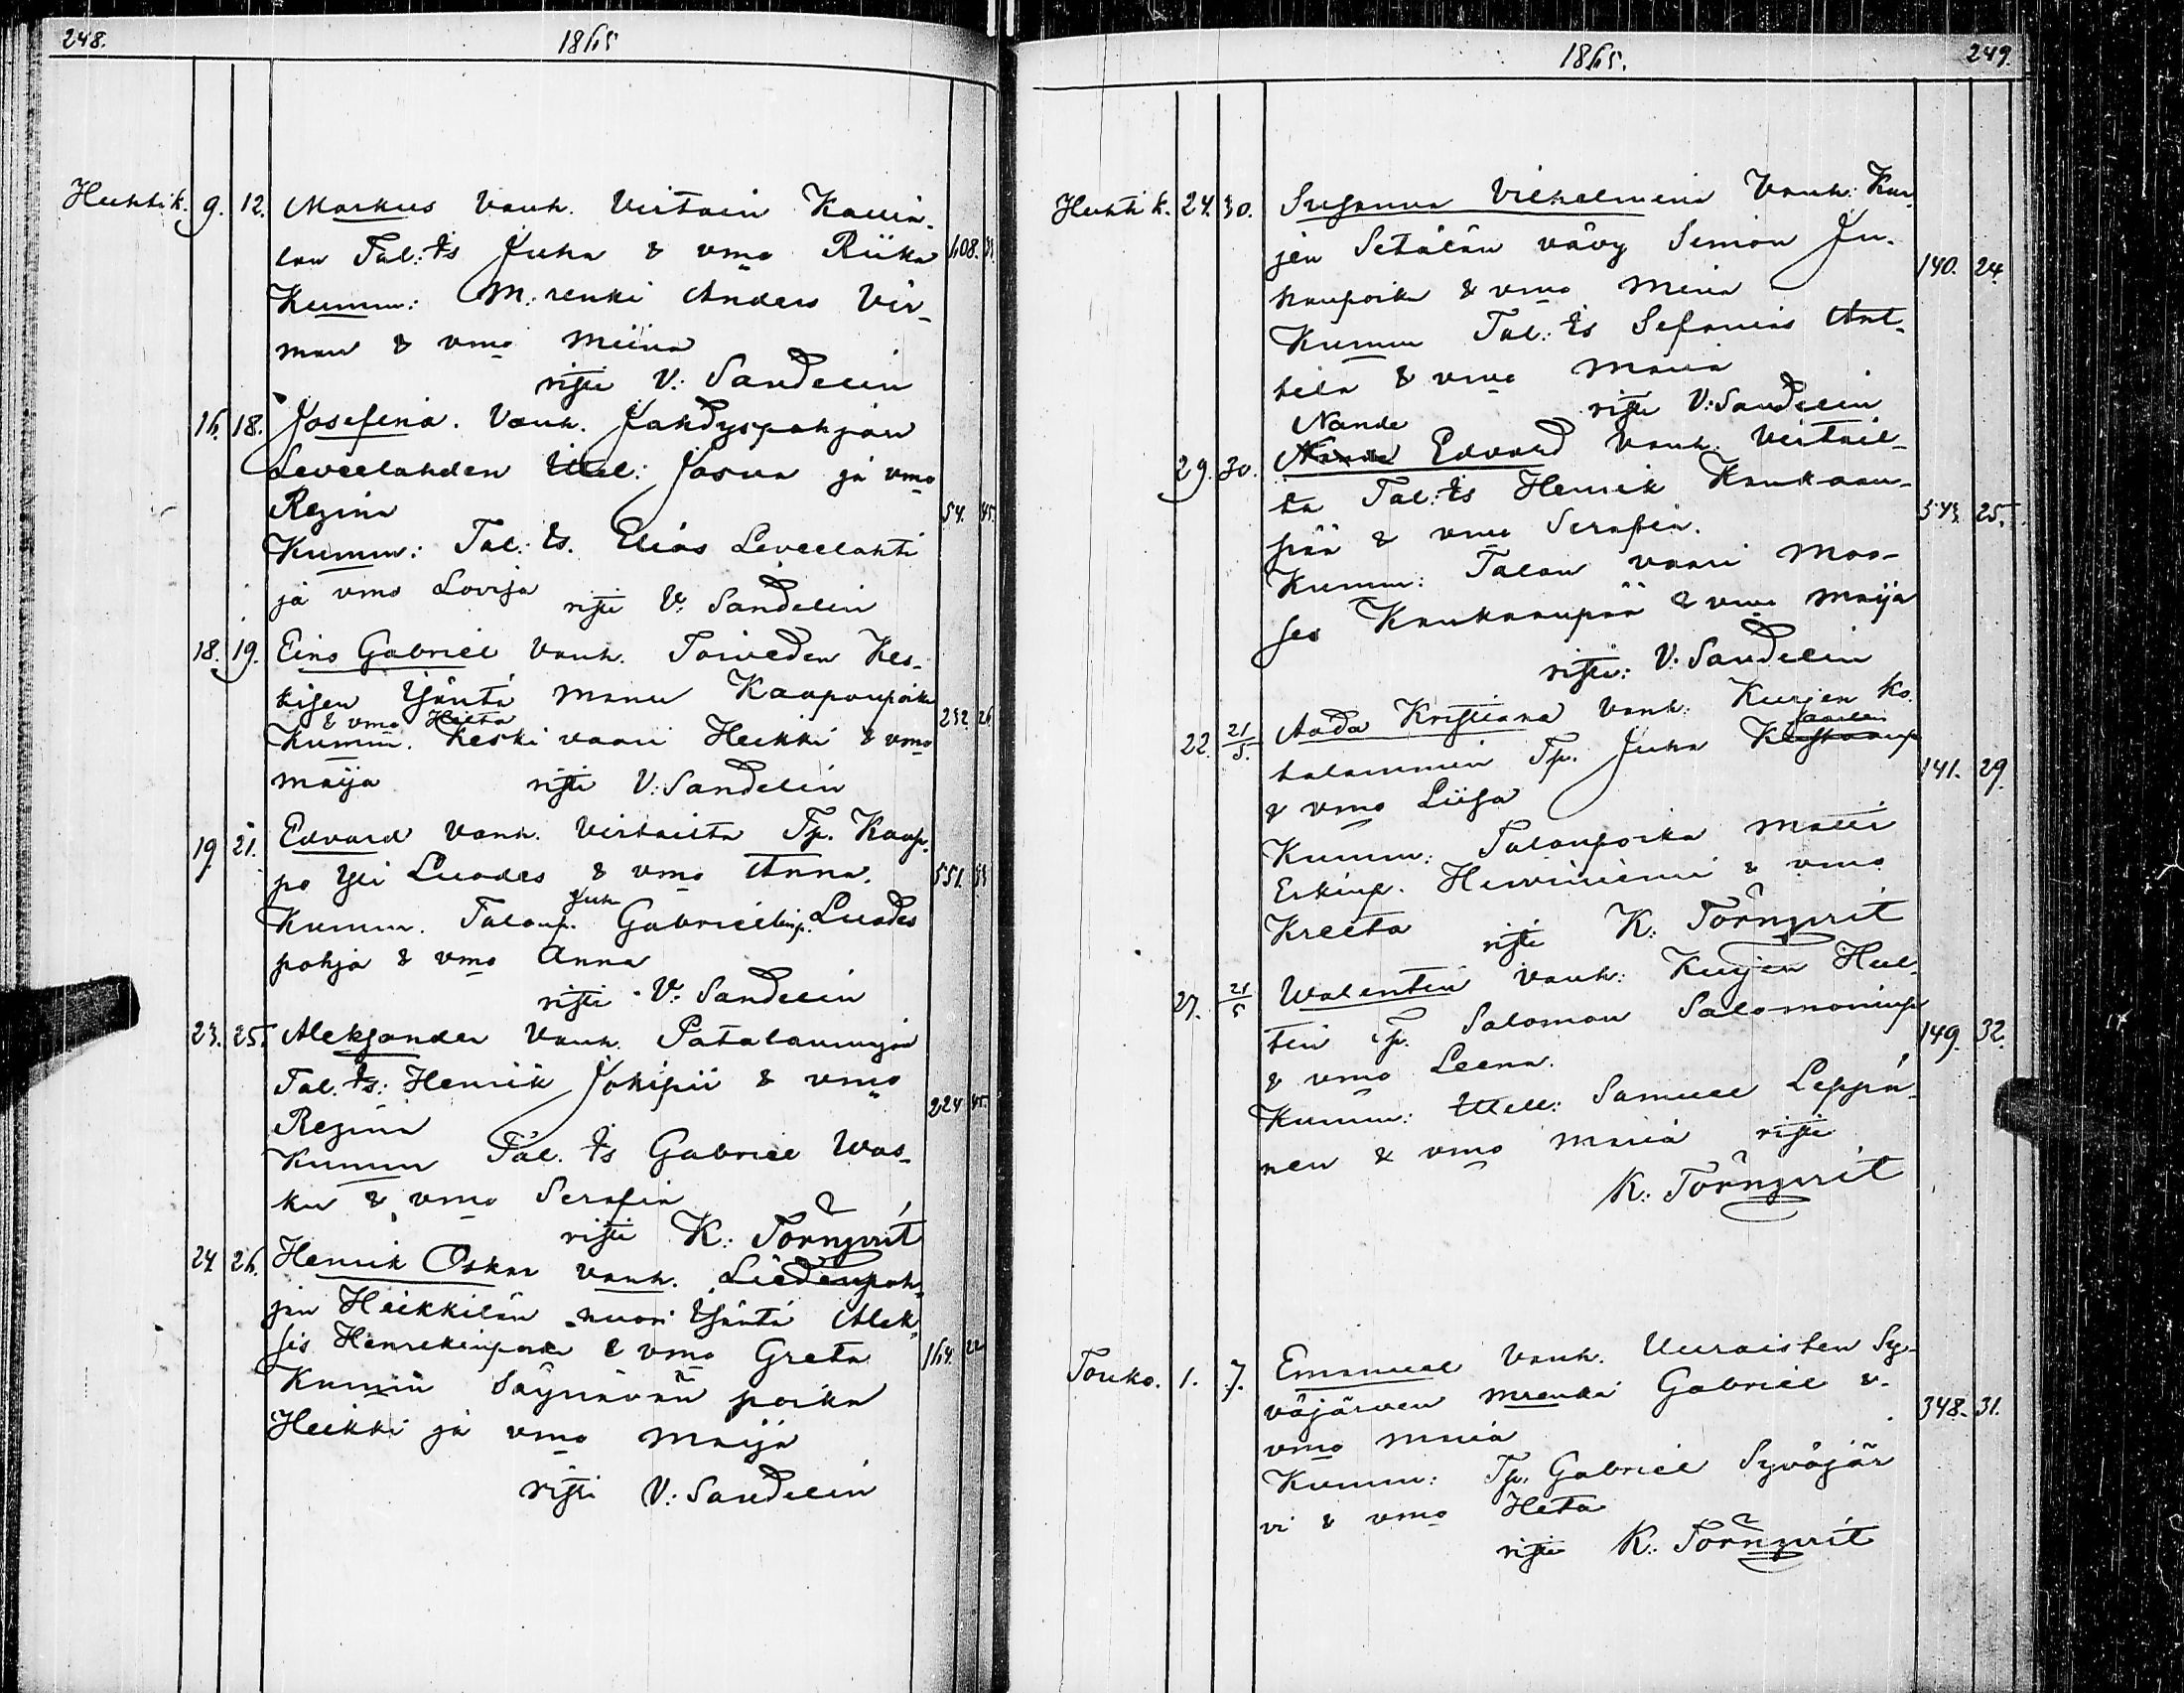 248. 1865
Huhtik. 9. 12. Markus Vanh. Virtain Kauia-
lan Tal: Is Juha & vmo Riika 608. 31.
Kumm: M: renki Anders Vir-
man & vmo Miina
risti V: Sandelin
16. 18. Josefina. Vanh. Jahdyspohjan
Leveelahden Itsel: Josua ja vmo
Regina 54. 45.
Kumm: Tal: Is. Elias Leveelahti
ja vmo Lovisa risti V: Sandelin
18. 19. Eino Gabriel Vanh. Toiveden Kes-
kisen Isäntä Manu Kaaponpoika 232. 26
& vmo Heta
Kumm. Keski vaari Heikki & vmo
Maija risti V: Sandelin
19. 21. Edvard Vanh. Virtaista Tp. Kaap-
po Yli Luodes & vmo Anna. 551. 39
Juh
Kumm. Talonp. Gabrielinp. Luodes
pohja & vmo Anna
risti V: Sandelin
23. 25. Aleksander Vanh. Patalammin
Tal. Is: Henrik Jokipii & vmo
Regina 224 45.
Kumm Tal. Is Gabriel Was-
ku & vmo Serafia
risti K: Törnqvist
24 26. Henrik Oskar Vanh. Liedenpoh-
jan Heikkilän nuori Isäntä Alek-
sis Henrekinpoika & vmo Greta 164. 22
Kummi Säynävän poika
Heikki ja vmo Maija
risti V: Sandelin
1865. 249.
Huhtik. 24. 30. Susanna Vilhelmina Vanh: Kur-
jen Setälän vävy Simon Ju-
hanpoika & vmo Miina 140. 24.
Kumm Tal: Is Sefanias Ant-
tila & vmo Maria
risti V: Sandelin
Nande
29. 30. Edvard Vanh. Virtail-
ta Tal: Is Henrik Kaukaan-
pää & vmo Serafia. 543. 25.
Kumm: Talon vaari Moo-
ses Kaukaanpää & vmo Maija
risti: V: Sandelin
22. 21/5. Aada Kristiana Vanh: Kurjen Ko-
talammin Tp. Juha
& vmo Liisa 141. 29.
Kumm: Talonpoika Matti
Erkinp. Hirviniemi & vmo
Kreeta risti K: Törnqvist
27. 21/5 Walentin Vanh: Kurjen Hul-
tin Tp. Salomon Salomoninp 149. 32.
& vmo Leena.
Kumm: Itsell: Samuel Leppä-
nen & vmo Maria risti
K: Törnqvist
Touko. 1. 7. Emanuel Vanh. Uuraisten Sy-
väjärven Mrenki Gabriel &. 348. 31.
vmo Maria
Kumm: Tp. Gabriel Syväjär
vi & vmo Heta
risti K: Törnqvist